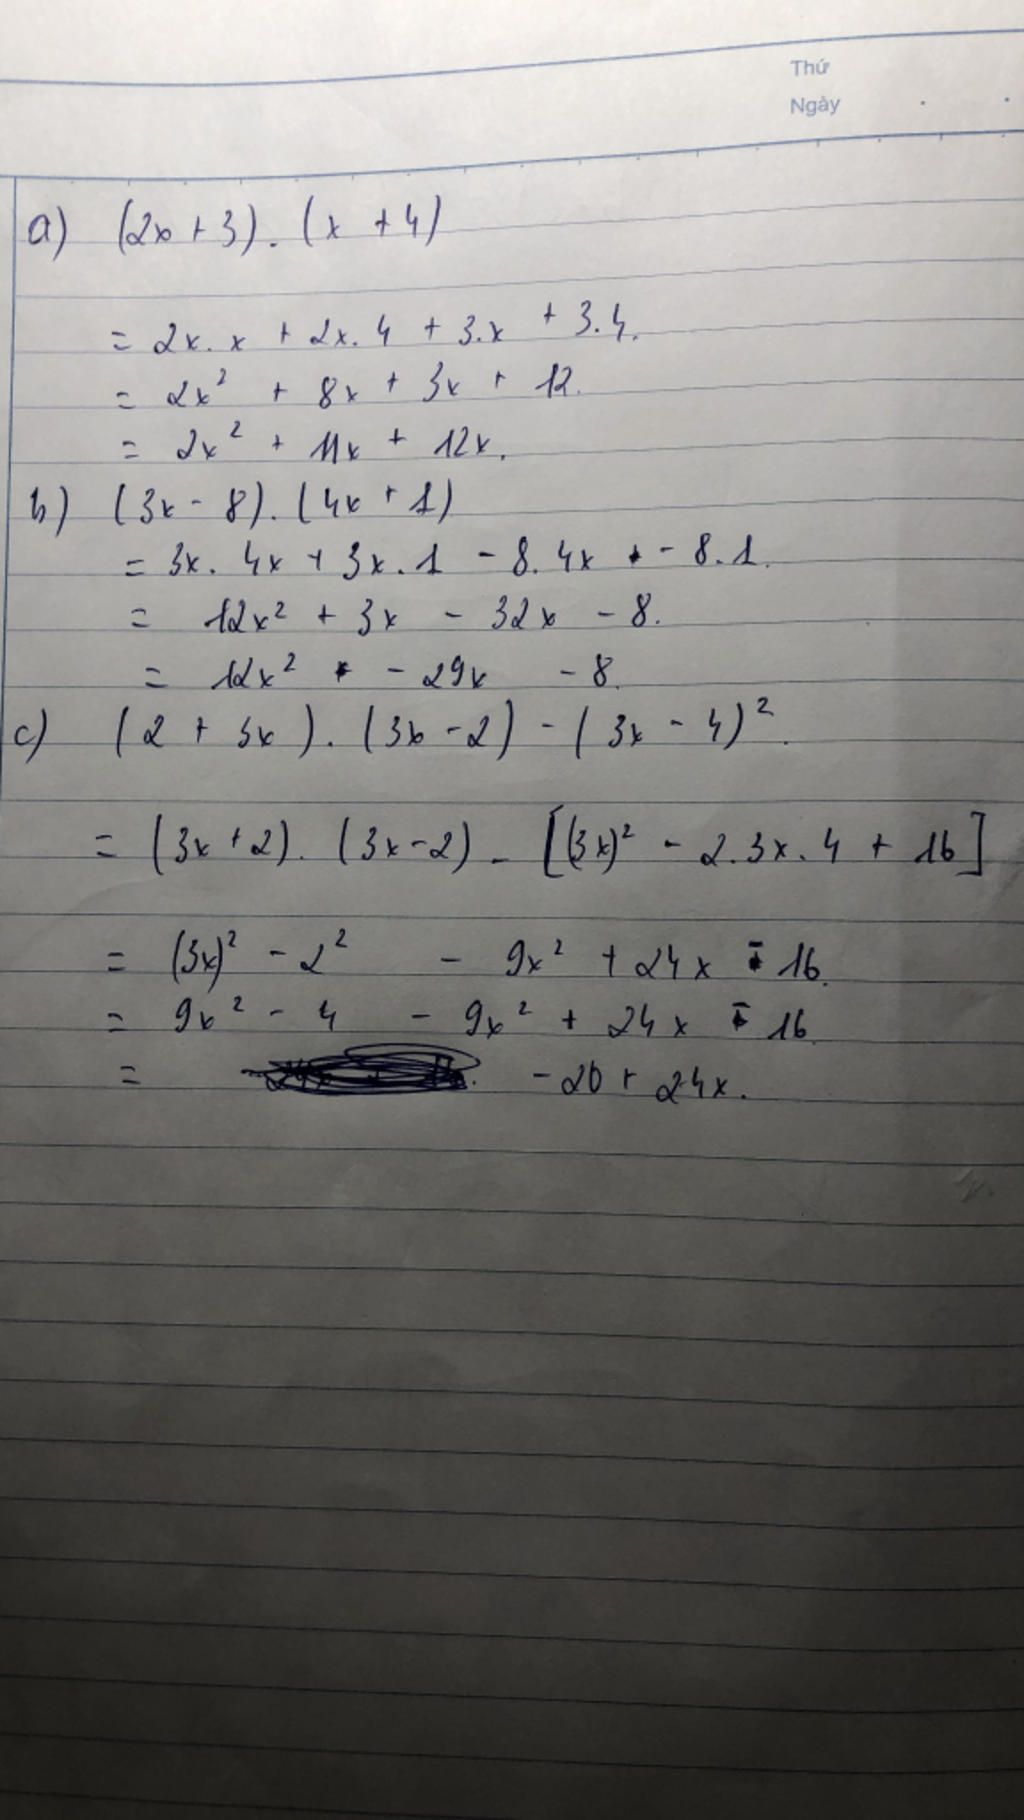 Thứ
Ngày
a) (2x + 3) . (x + 4)
= 2x. x + 2x. 4 + 3.x + 3.4.
= 2x² + 8x + 3x + 12.
= 2x² + 11x + 12x.
b) (3x - 8). (4x + 1)
= 3x. 4x + 3x. 1 - 8. 4x - 8.1.
= 12x² + 3x - 32x - 8.
= 12x² - 29x - 8.
c) (2 + 3x). (3x - 2) - (3x - 4)².
= (3x + 2). (3x - 2) - [(3x)² - 2.3x. 4 + 16]
= (3x)² - 2² - 9x² + 24x - 16.
= 9x² - 4 - 9x² + 24x - 16.
= -20 + 24x.